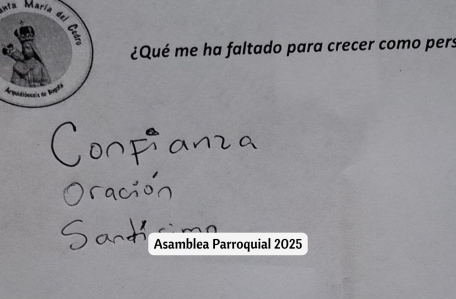 Santa María del Cedro
Arquidiócesis de Bogotá
¿Qué me ha faltado para crecer como pers
Confianza
Oración
Santísimo
Asamblea Parroquial 2025